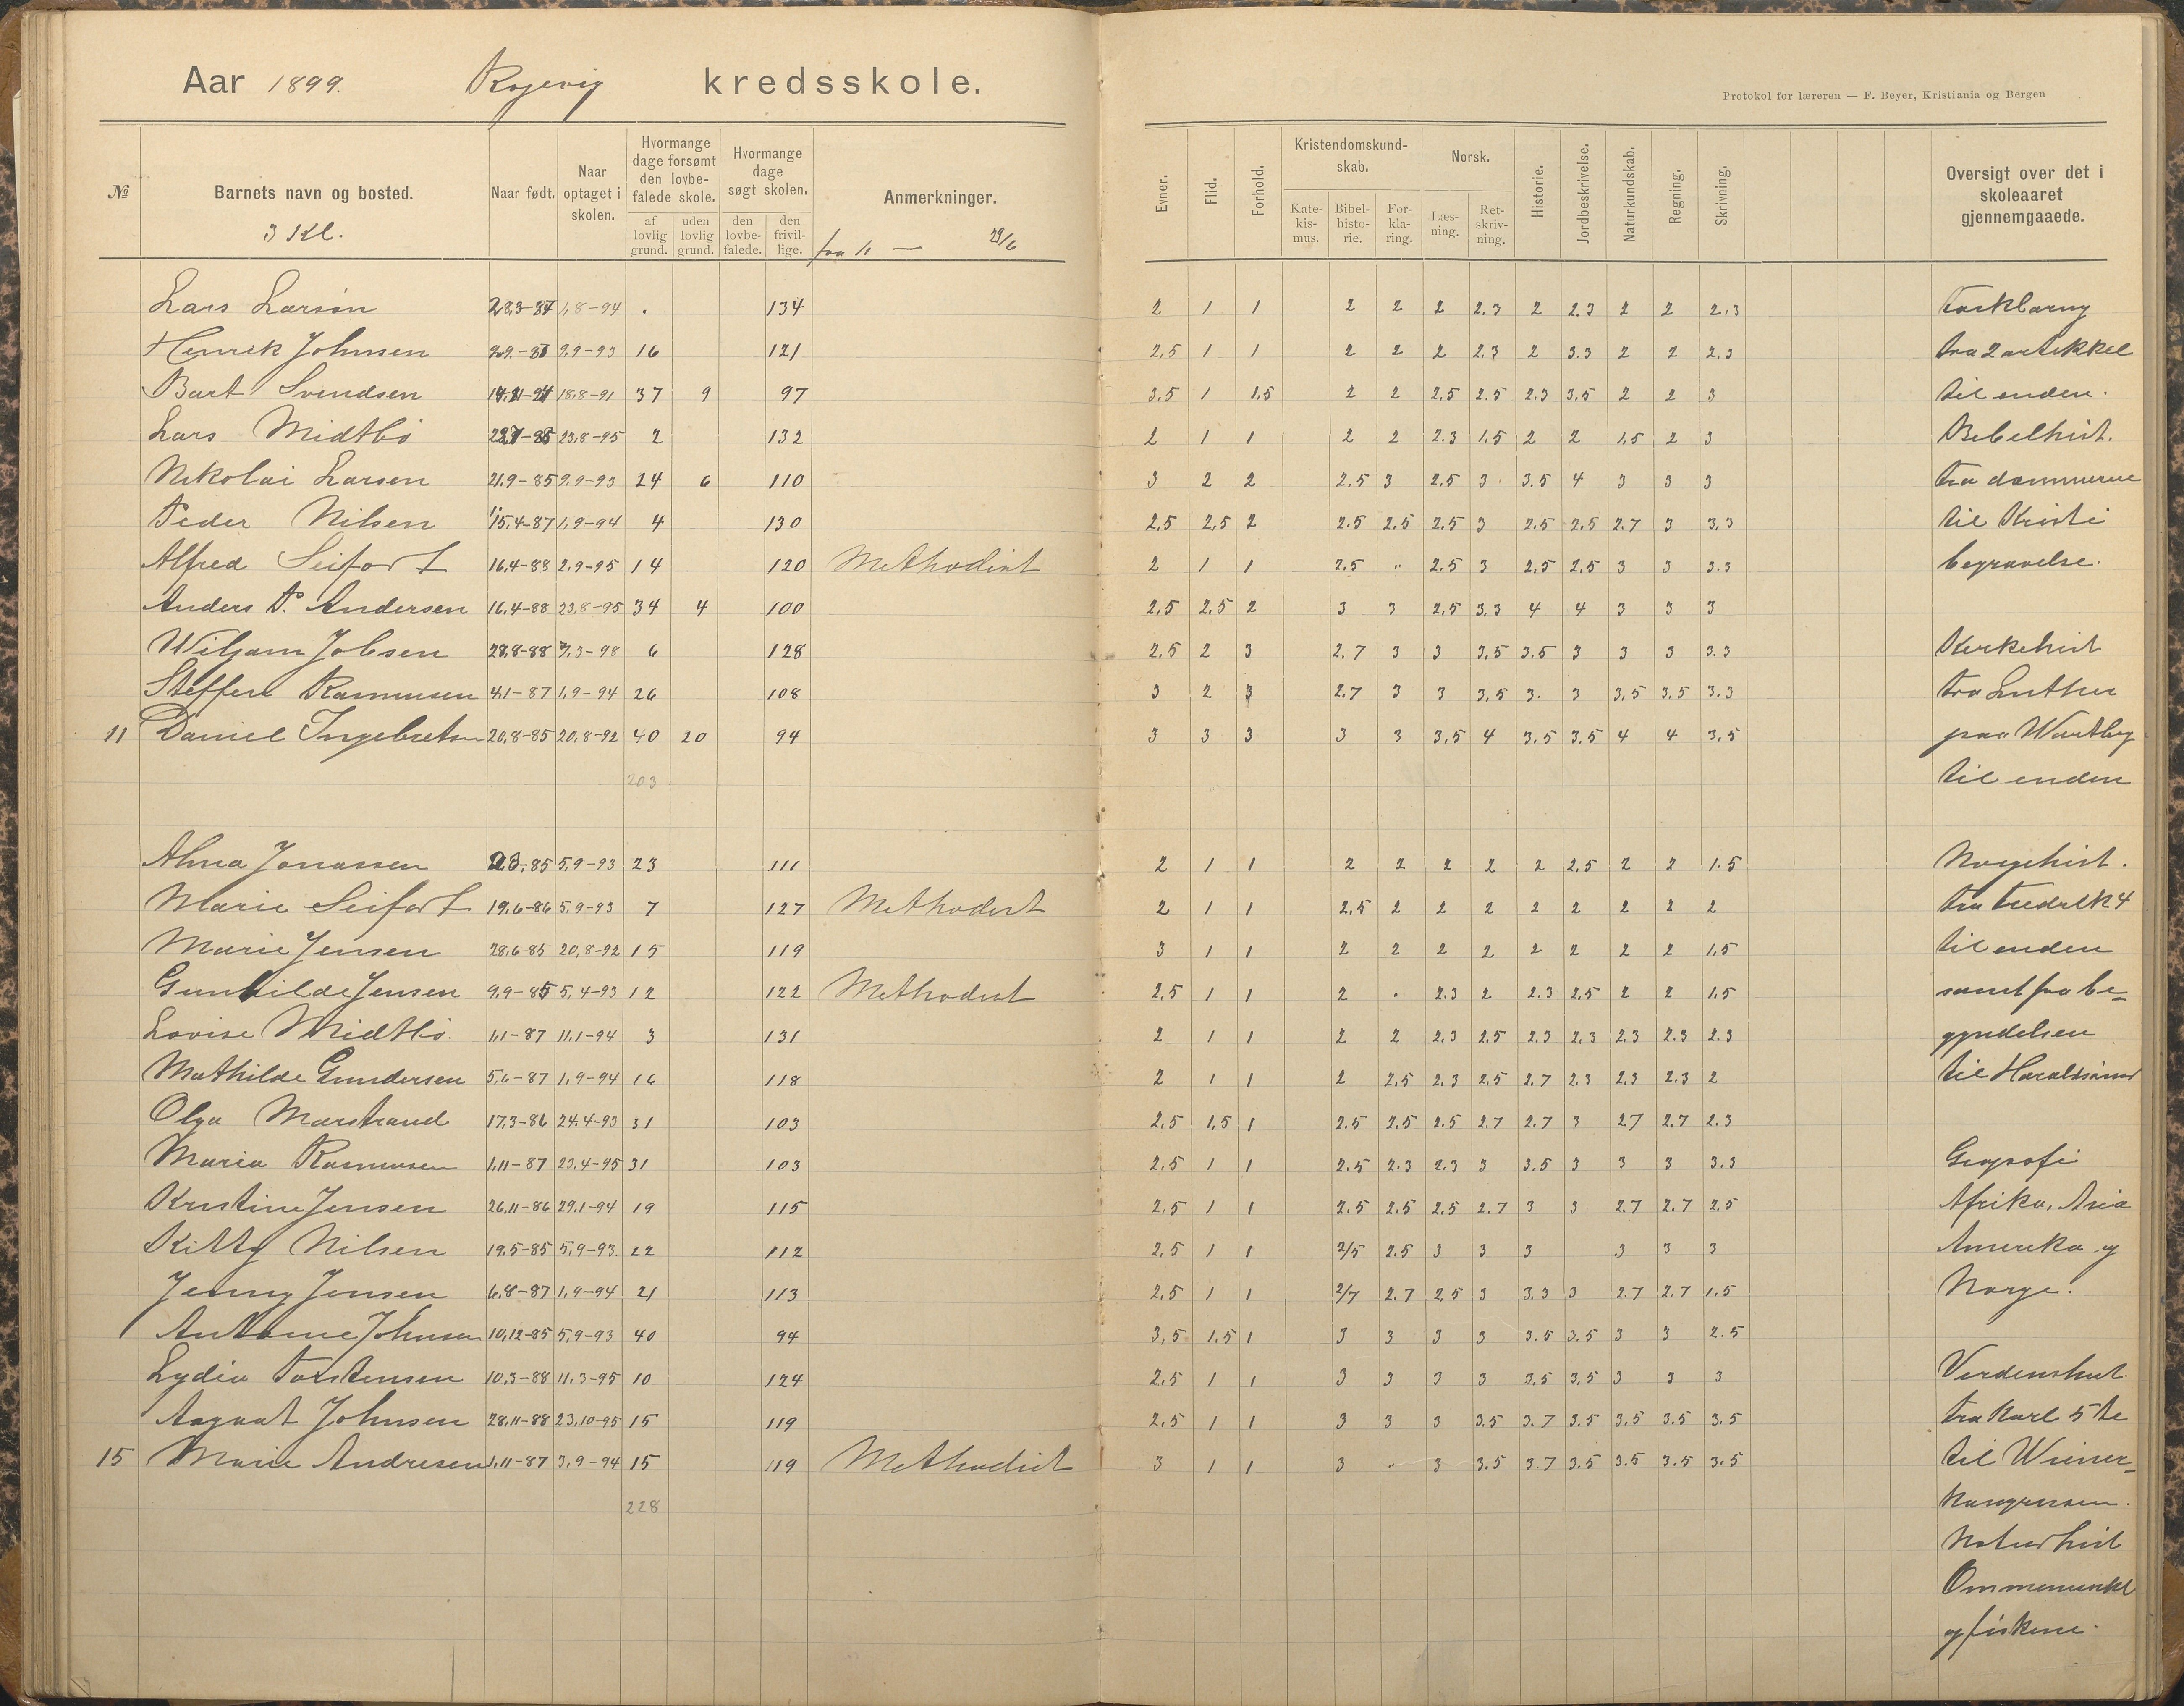 Aar 1899. Rogevig kredsskole.
Protokol for læreren — F. Beyer, Kristiania og Bergen
№ Barnets navn og bosted. Naar født. Naar optaget i skolen. Hvormange dage forsømt den lovbefalede skole. af lovlig grund. uden lovlig grund. Hvormange dage søgt skolen. den lovbefalede. den frivillige. Anmerkninger. Evner. Flid. Forhold. Kristendomskundskab. Katekismus. Bibelhistorie. Forklaring. Norsk. Læsning. Retskrivning. Historie. Jordbeskrivelse. Naturkundskab. Regning. Skrivning. Oversigt over det i skoleaaret gjennemgaaede.
3 Kl. fra 11 — 29/6
Lars Larsen 1,8-94 134 2 1 1 2 2 2 2.3 2 2.3 2 2 2,3
Henrik Johnsen 9,9-93 16 121 2,5 1 1 2 2 2 2.3 2 3.3 2 2 2,3 fra 2 artikkel
Bart Svendsen 18,8-91 37 9 97 3,5 1 1,5 2 2 2,5 2.5 2.3 3,5 2 2 3 til enden.
Lars Midtbø 23,8-95 2 132 2 1 1 2 2 2.3 1,5 2 2 1,5 2 3 Bibelhist.
Nikolai Larsen 21,9-85 9,9-93 24 6 110 3 2 2 2.5 3 2.5 3 3.5 4 3 3 3 fra dommerne
Peder Nilsen 15,4-87 1,9-94 4 130 2,5 2,5 2 2.5 2,5 2,5 3 2,5 2,5 2.7 3 3,3 til Kristi
Alfred Seifort 16,4-88 2,9-95 14 120 Methodist 2 1 1 2.5 " 2.5 3 2,5 2,5 3 3 3.3 begravelse.
Anders P. Andersen 16,4-88 23,8-95 34 4 100 2,5 2,5 2 3 3 2,5 3,3 4 4 3 3 3
Wiljam Jobsen 28,8-88 7,3-98 6 128 2,5 2 3 2.7 3 3 3,5 3.5 3 3 3 3.3 Kirkehist
Steffen Rasmusen 4,1-87 1,9-94 26 108 3 2 3 2.7 3 3 3,5 3. 3 3,5 3,5 3.3 fra Luther
11 Daniel Ingebretsen 20,8-85 20,8-92 40 20 94 3 3 3 3 3 3,5 4 3.5 3.5 4 4 3,5 paa Wartbg
203 til enden
Alma Jonassen 5,9-93 23 111 2 1 1 2 2 2 2 2 2,5 2 2 1.5 Norgehist.
Marie Seifort 19,6-86 5,9-93 7 127 Methodist 2 1 1 2,5 2 2 2 2 2 2 2 2 fra Fredrik 4
Marie Jensen 28,6 85 20,8-92 15 119 3 1 1 2 2 2 2 2 2 2 2 1,5 til enden
Gunhilde Jensen 9,9-85 5,4-93 12 122 Methodist 2,5 1 1 2 . 2.3 2 2.3 2,5 2 2 1,5 samt fra be-
Lovise Midtbø. 1,1-87 11,1-94 3 131 2 1 1 2 2 2,3 2.5 2.3 2,3 2.3 2.3 2.3 gyndelsen
Mathilde Gundersen 5,6-87 1,9-94 16 118 2 1 1 2 2.5 2.3 2,5 2.7 2.3 2.3 2,3 2
Olga Marstrand 17,3-86 24,4-93 31 103 2,5 1,5 1 2.5 2.5 2.5 2.7 2.7 3 2.7 2.7 2.3
Maria Rasmusen 1,11-87 23,4-95 31 103 2,5 1 1 2.5 2.3 2.3 3 3.5 3 3 3 3.3 Geografi
Kristine Jensen 26,11-86 29,1-94 19 115 2,5 1 1 2.5 2.5 2.5 2.7 3 3 2.7 2.7 2,5 Afrika, Asia
Kitty Nilsen 19,5-85 5,9-93. 22 112 2,5 1 1 2/5 2.5 3 3 3 3 3 3 Amerika og
Jenny Jensen 6,8-87 1,9-94 21 113 2,5 1 1 2/7 2.7 2,5 3 3.3 3 2.7 2.7 1.5 Norge.
Antonie Johnsen 10,12-85 5,9-93 40 94 3,5 1,5 1 3 3 3 3 3.5 3.5 3 3 2.5
Lydia Torstensen 10,3-88 11,3-95 10 124 2,5 1 1 3 3 3 3 3.5 3,5 3 3 3 Verdenshist.
Aagaat Johnsen 28,11-88 23,10-95 15 119 2,5 1 1 3 3 3 3.5 3.7 3.5 3.5 3.5 3.5 fra Karl 5te
15 Marie Andresen 1,11-87 3,9-94 15 119 Methodist 3 1 1 3 " 3 3.5 3.7 3.5 3.5 3.5 3.5 til Wiener-
228 kongressen.
Naturhist
og fiskene.